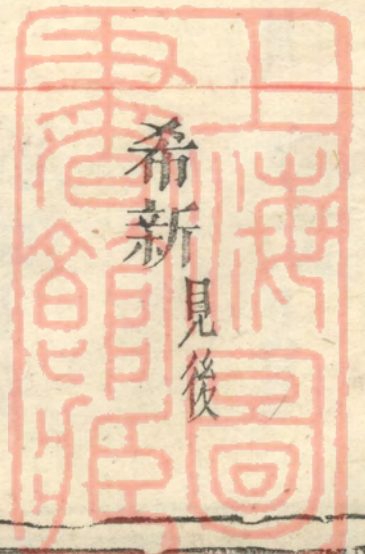 希新見後
上海圖
書館藏